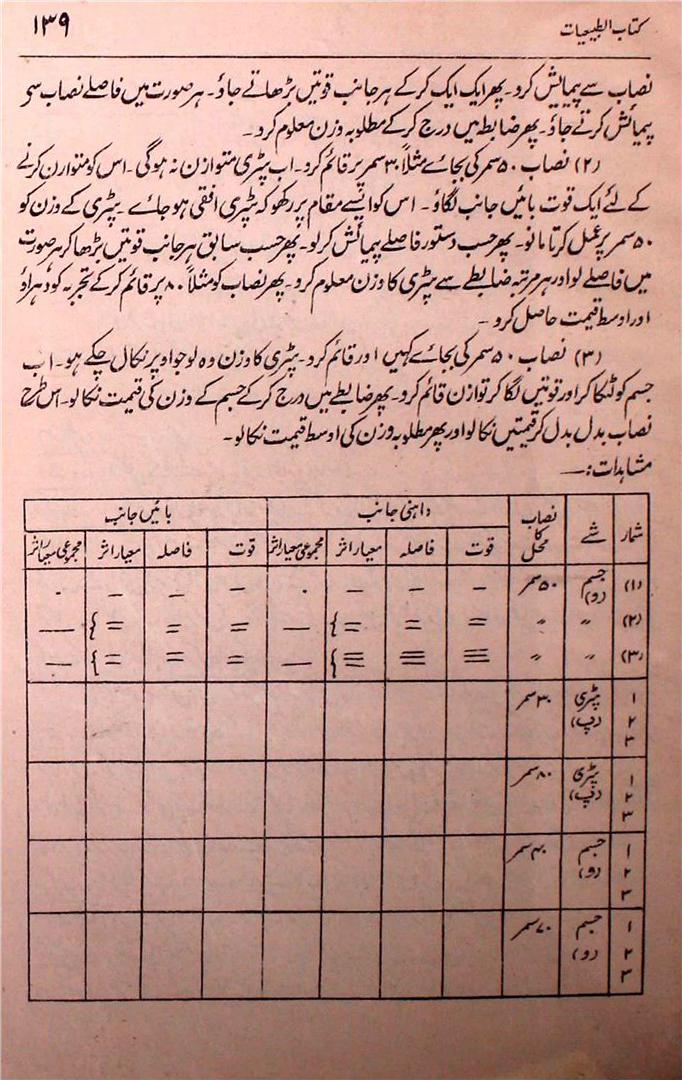 کتاب الطبیعیات
۱۳۹
نصاب سے پیمایش کرو۔ پھر ایک ایک کر کے ہر جانب قوتیں بڑھاتے جاؤ۔ ہر صورت میں فاصلے نصاب سے
پیمائش کرتے جاؤ۔ پھر ضابطے میں درج کرکے مطلوبہ وزن معلوم کرو۔
(۲) نصاب ۵۰ سمر کی بجائے مثلاً ۳۰ سمر پر قائم کرو۔ اب پٹری متوازن نہ ہوگی۔ اس کو متوازن کرنے
کے لئے ایک قوت بائیں جانب لگاؤ۔ اس کو ایسے مقام پر رکھو کہ پٹری افقی ہو جائے۔ پٹری کے وزن کو
۵۰ سمر پر عمل کرتا مانو۔ پھر حسب دستور فاصلے پیمائش کرلو۔ پھر حسب سابق ہر جانب قوتیں بڑھا کر ہر صورت
میں فاصلے لو اور ہر مرتبہ ضابطے سے پٹری کا وزن معلوم کرو۔ پھر نصاب کو مثلاً ۸۰ پر قائم کرکے تجربہ کو دہراؤ
اور اوسط قیمت حاصل کرو۔
(۳) نصاب ۵۰ سمر کی بجائے کہیں اور قائم کرو۔ پٹری کا وزن وہ لو جو اوپر نکال چکے ہو۔ اب
جسم کو لٹکا کر اور قوتیں لگا کر توازن قائم کرو۔ پھر ضابطے میں درج کرکے جسم کے وزن کی قیمت نکالو۔ اس طرح
نصاب بدل بدل کر قیمتیں نکالو اور پھر مطلوبہ وزن کی اوسط قیمت نکالو۔
مشاہدات:—
شمار شے نصاب کا محل داہنی جانب بائیں جانب
قوت فاصلہ معیار اثر مجموعی معیار اثر قوت فاصلہ معیار اثر مجموعی معیار اثر
(۱) جسم (و) ۵۰ سمر
(۲) " "
(۳) " "
۱ پٹری (پ) ۳۰ سمر
۲
۳
۱ پٹری (پ) ۸۰ سمر
۲
۳
۱ جسم (و) ۴۰ سمر
۲
۳
۱ جسم (و) ۷۰ سمر
۲
۳